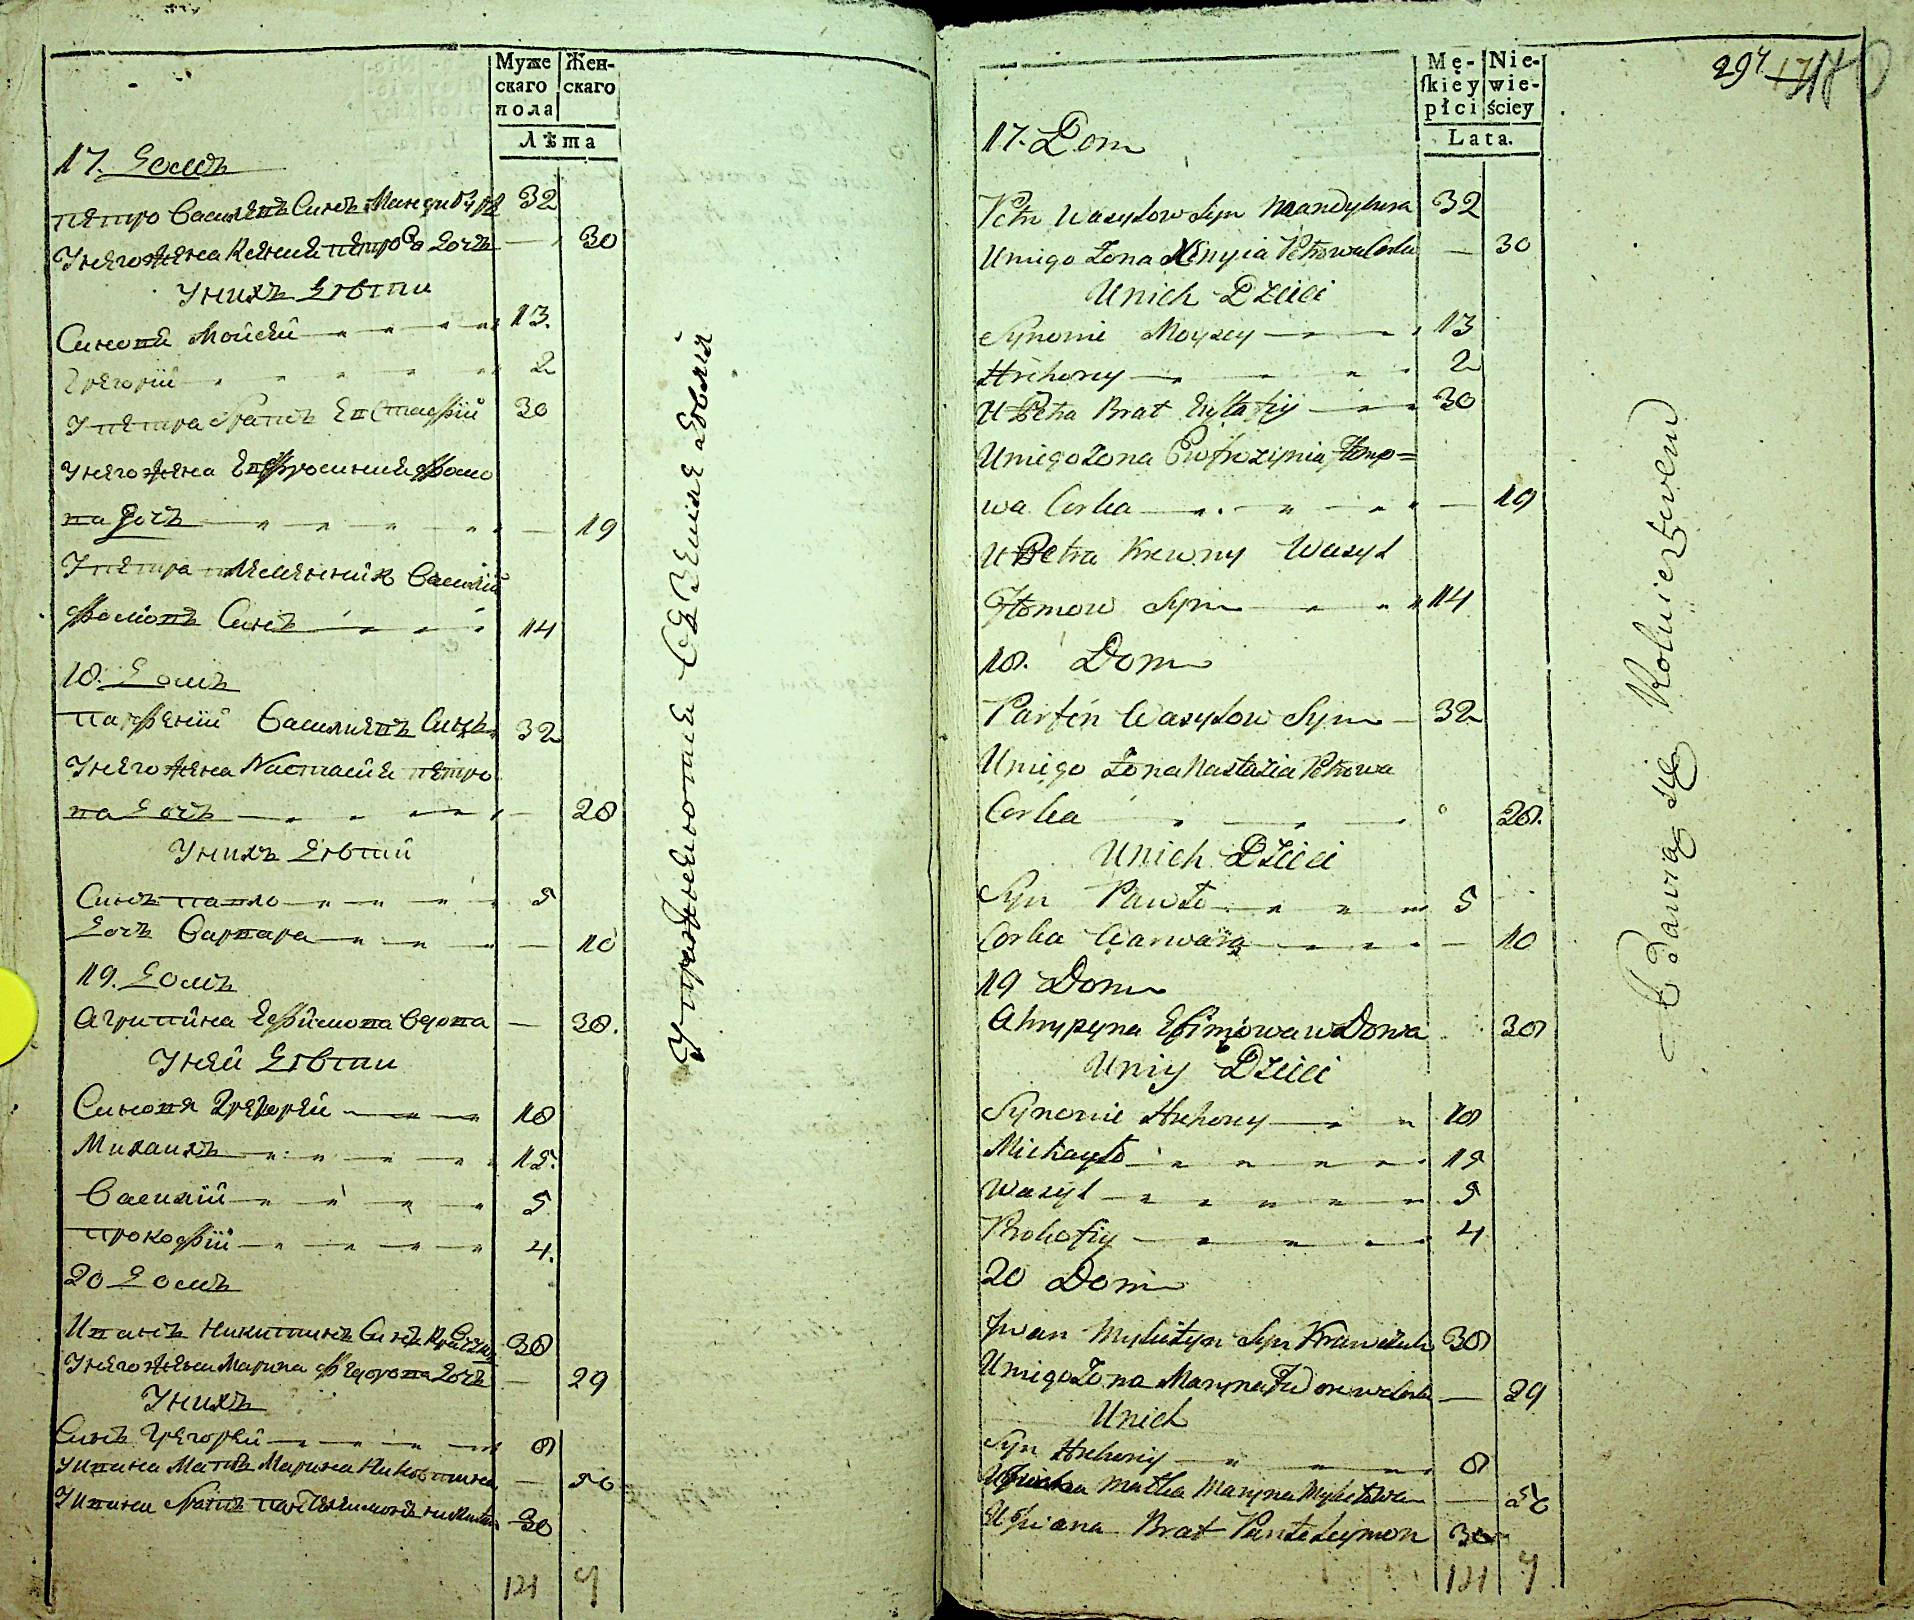 Муже
скаго
пола
Жен-
скаго
Лѣта
17. Домъ
Петро Василевъ Синъ Мандибура 32
У него Жена Ксения Петрова Дочь — 30
У нихъ Дѣти
Синове Мойсей 13.
Грегорій 2
У Петра Братъ Евстафій 30
У него Жена Евфросиния Фомо
ва Дочь — 19
У Петра племенникъ Василій
Фомовъ Синъ 14
18. Домъ
Парфеній Василиевъ Синъ 32
У него Жена Настасия Петро
ва Дочь — 28
У нихъ Дѣтий
Синъ Павло 5
Дочь Варвара — 10
19. Домъ
Агрипина Ефимова Вдова — 38.
У ней Дѣти
Синове Грегорей 18
Михаилъ 15.
Василій 5
Прокофій 4.
20 Домъ
Иванъ Никитинъ Синъ 38
У него Жена Марина Федорова Дочь — 29
У нихъ
Синъ Грегорей 8
У Ивана Матъ Марина — 50
У Ивана Братъ Пантелимонъ 30
121 4
Упражнеютце Въ Земледѣлия
Mę-
skiey
płci
Nie-
wie-
ściey
Lata.
294
17. Dom
Petr Wasylow Syn Mandybura 32
U niego Zona Xenyia Petrowa Corka — 30
U nich Dzieci
Synowie Moysey 13
Hrehory 2
U Petra Brat Eustafiy 30
U niego Zona Ewfrozynia
wa Corka — 19
U Petra Krewny Wasyl
Homow Syn 14
18. Dom
Parfen Wasylow Syn — 32
U niego Zona Nastazia Petrowa
Corka 28.
U nich Dzieci
Syn Pawło 5
Corka Warwara — 10
19 Dom
Ahrypyna Efimowa wdowa 38
U niy Dzieci
Synowie Hrehory 18
Michayło 15
Wasyl 5
Prokofiy 4
20 Dom
Jwan Mykityn Syn Krawczuk 38
U niego Zona Maryna Fedorowa Corka — 29
U nich
Syn Hrehoriy 8
Matka Maryna Mykitowa — 50
U Jwana Brat Panteleymon 30
121 4
Bawią się Rolnictwem